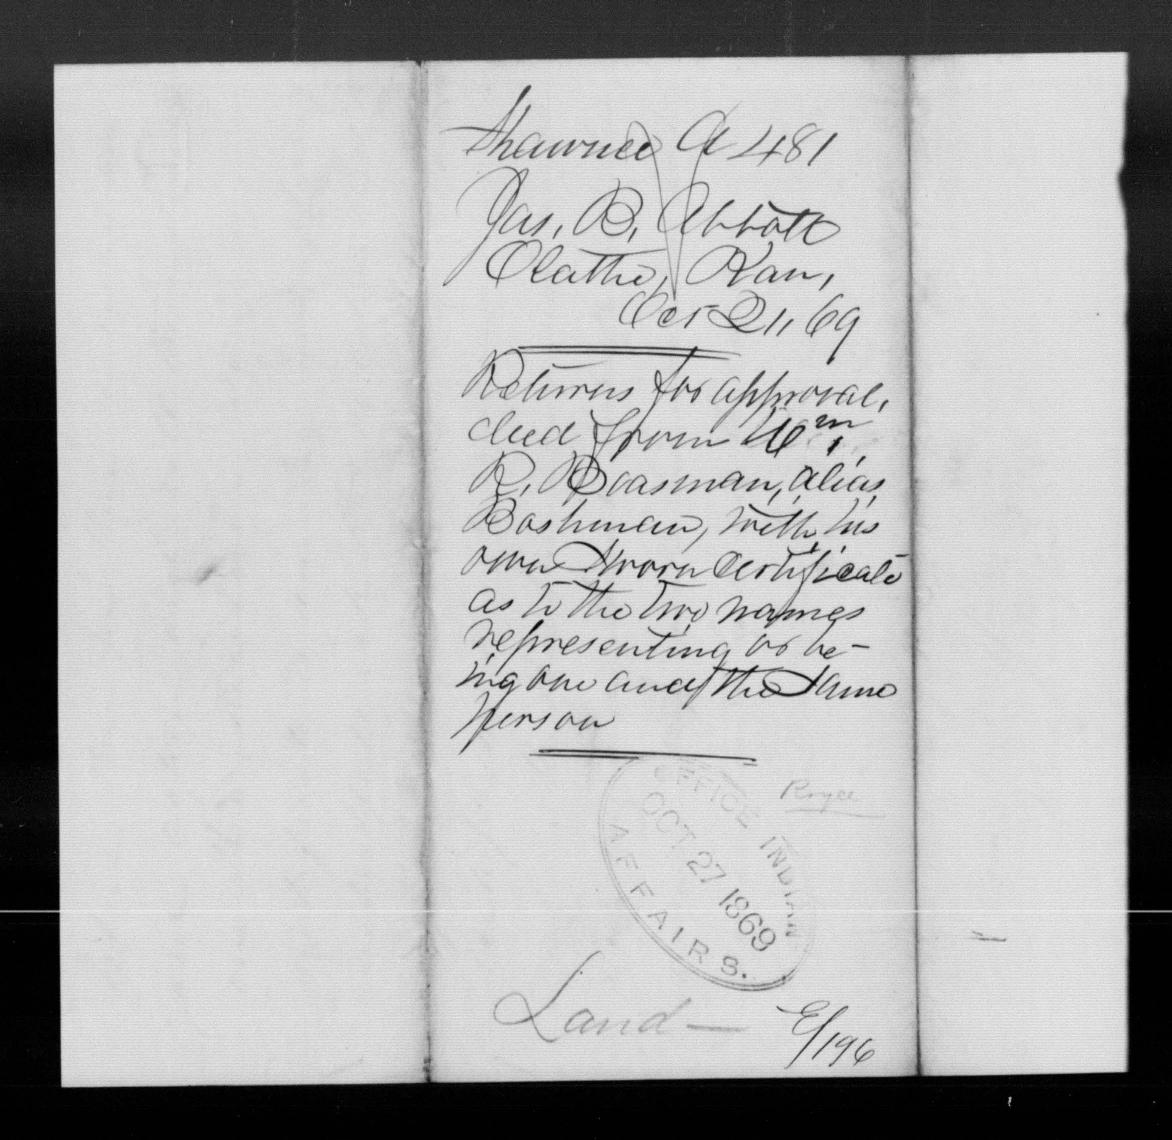 Shawnee A 481
Jas. B. Abbott
Olathe, Kan,
Oct 21, 69
Returns for approval,
deed from Wm.
R. Boasman, alias
Boshman, with his
own sworn certificate
as to the two names
representing or be-
ing one and the same
person
Royce
OFFICE INDIAN AFFAIRS.
OCT 27 1869
Land—
E/196